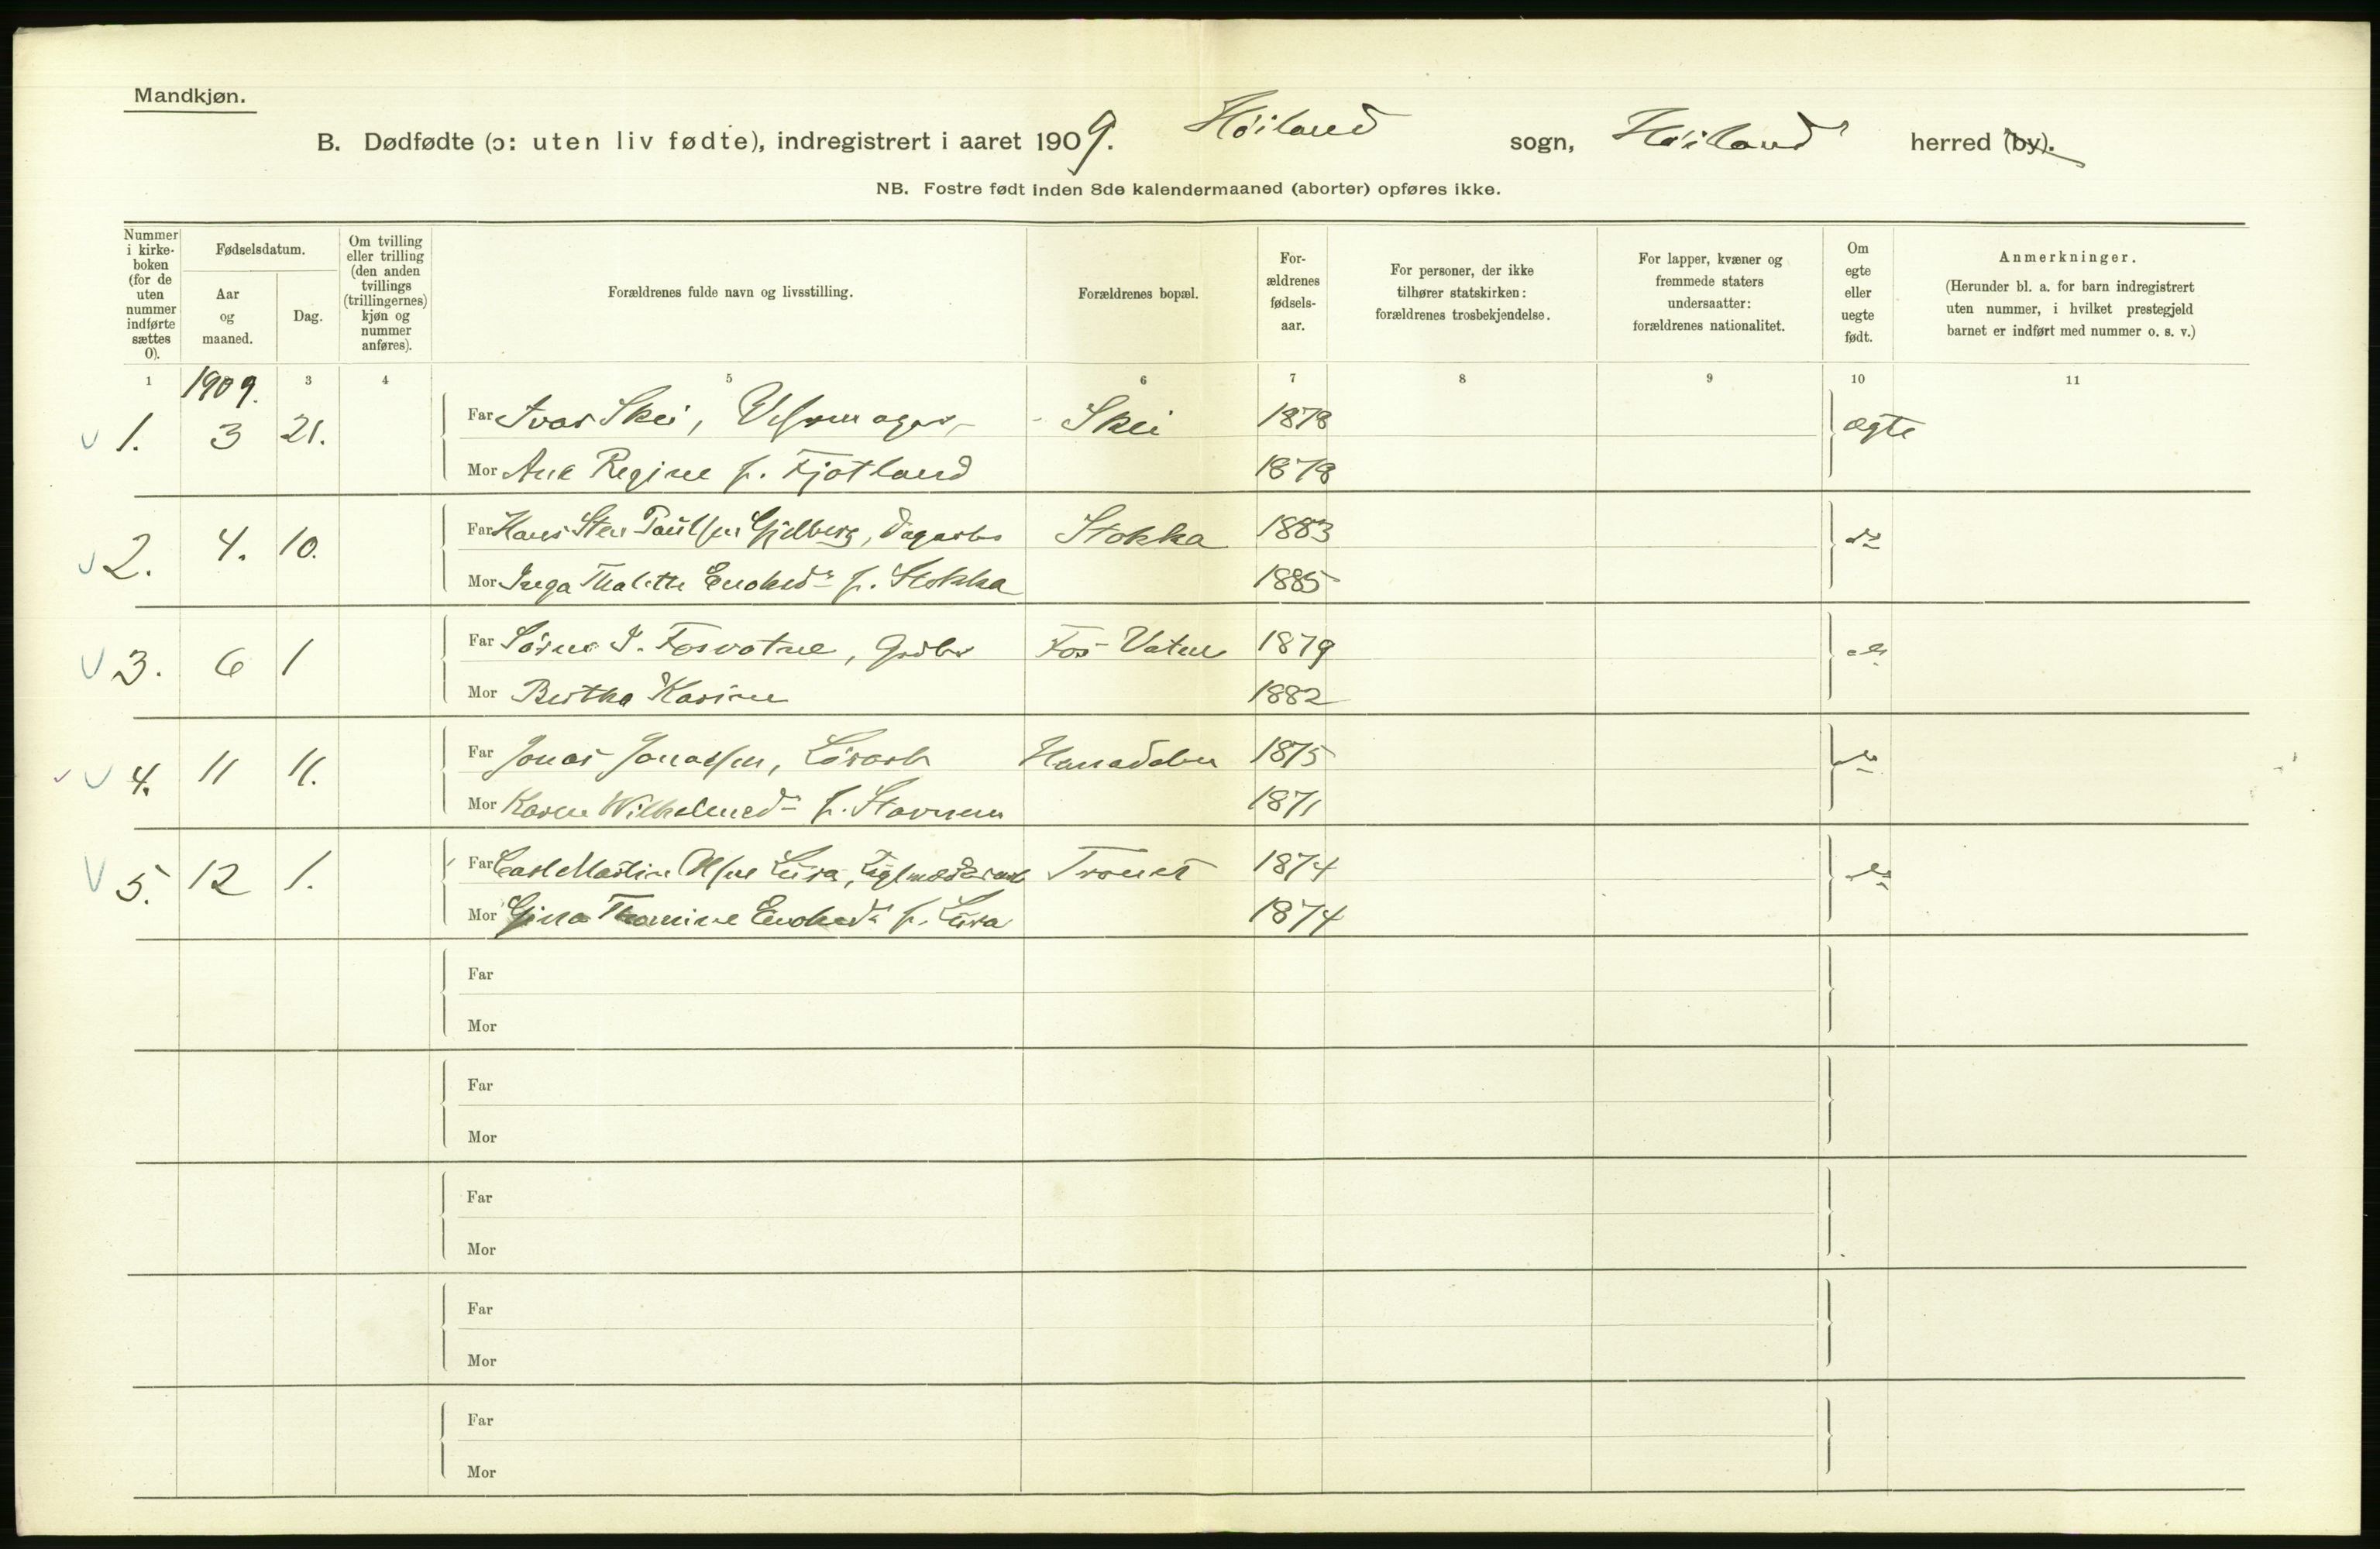 Mandkjøn.
B. Dødfødte (ɔ: uten liv fødte), indregistrert i aaret 1909. Høiland sogn, Høiland herred (by).
NB. Fostre født inden 8de kalendermaaned (aborter) opføres ikke.
Nummer i kirke-boken (for de uten nummer indførte sættes 0).
Fødselsdatum.
Aar og maaned.
Dag.
Om tvilling eller trilling (den anden tvillings (trillingernes) kjøn og nummer anføres).
Forældrenes fulde navn og livsstilling.
Forældrenes bopæl.
For-ældrenes fødsels-aar.
For personer, der ikke tilhører statskirken: forældrenes trosbekjendelse.
For lapper, kvæner og fremmede staters undersaatter: forældrenes nationalitet.
Om egte eller uegte født.
Anmerkninger.
(Herunder bl. a. for barn indregistrert uten nummer, i hvilket prestegjeld barnet er indført med nummer o. s. v.)
1 3 4 5 6 7 8 9 10 11
1909.
1. 3 21. Far Ivar Skei, Skei 1878 ægte
Mor Ane Regine f. Fjotland 1878
2. 4. 10. Far Hans Sten Paulsen Gjelberg, Dagarb Stokka 1883 do
Mor Inga Malette Enoksdr f. Stokka 1885
3. 6 1 Far Sørine J. Fosvatne, Grdbr Fos-Vatne 1879 do
Mor Bertha Karine 1882
4. 11 11. Far Jonas Jonassen, Løsarb Hanadalen 1875 do
Mor Karen Wilhelmsdr f. Stavnem 1871
5. 12 1. Far Carl Martin Olsen Lura, Tronæs 1874 do
Mor Gina Thomine Enoksdr f. Lura 1874
Far
Mor
Far
Mor
Far
Mor
Far
Mor
Far
Mor